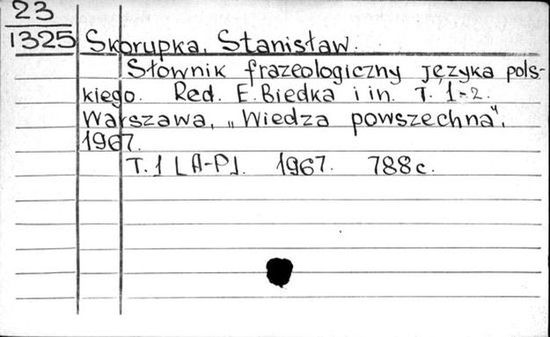 23
1325
Skorupka, Stanisław.
Słownik frazeologiczny języka pols-
kiego. Red. E. Biedka i in. T. 1-2.
Warszawa, „Wiedza powszechna",
1967.
T. 1 [A-P]. 1967. 788 c.